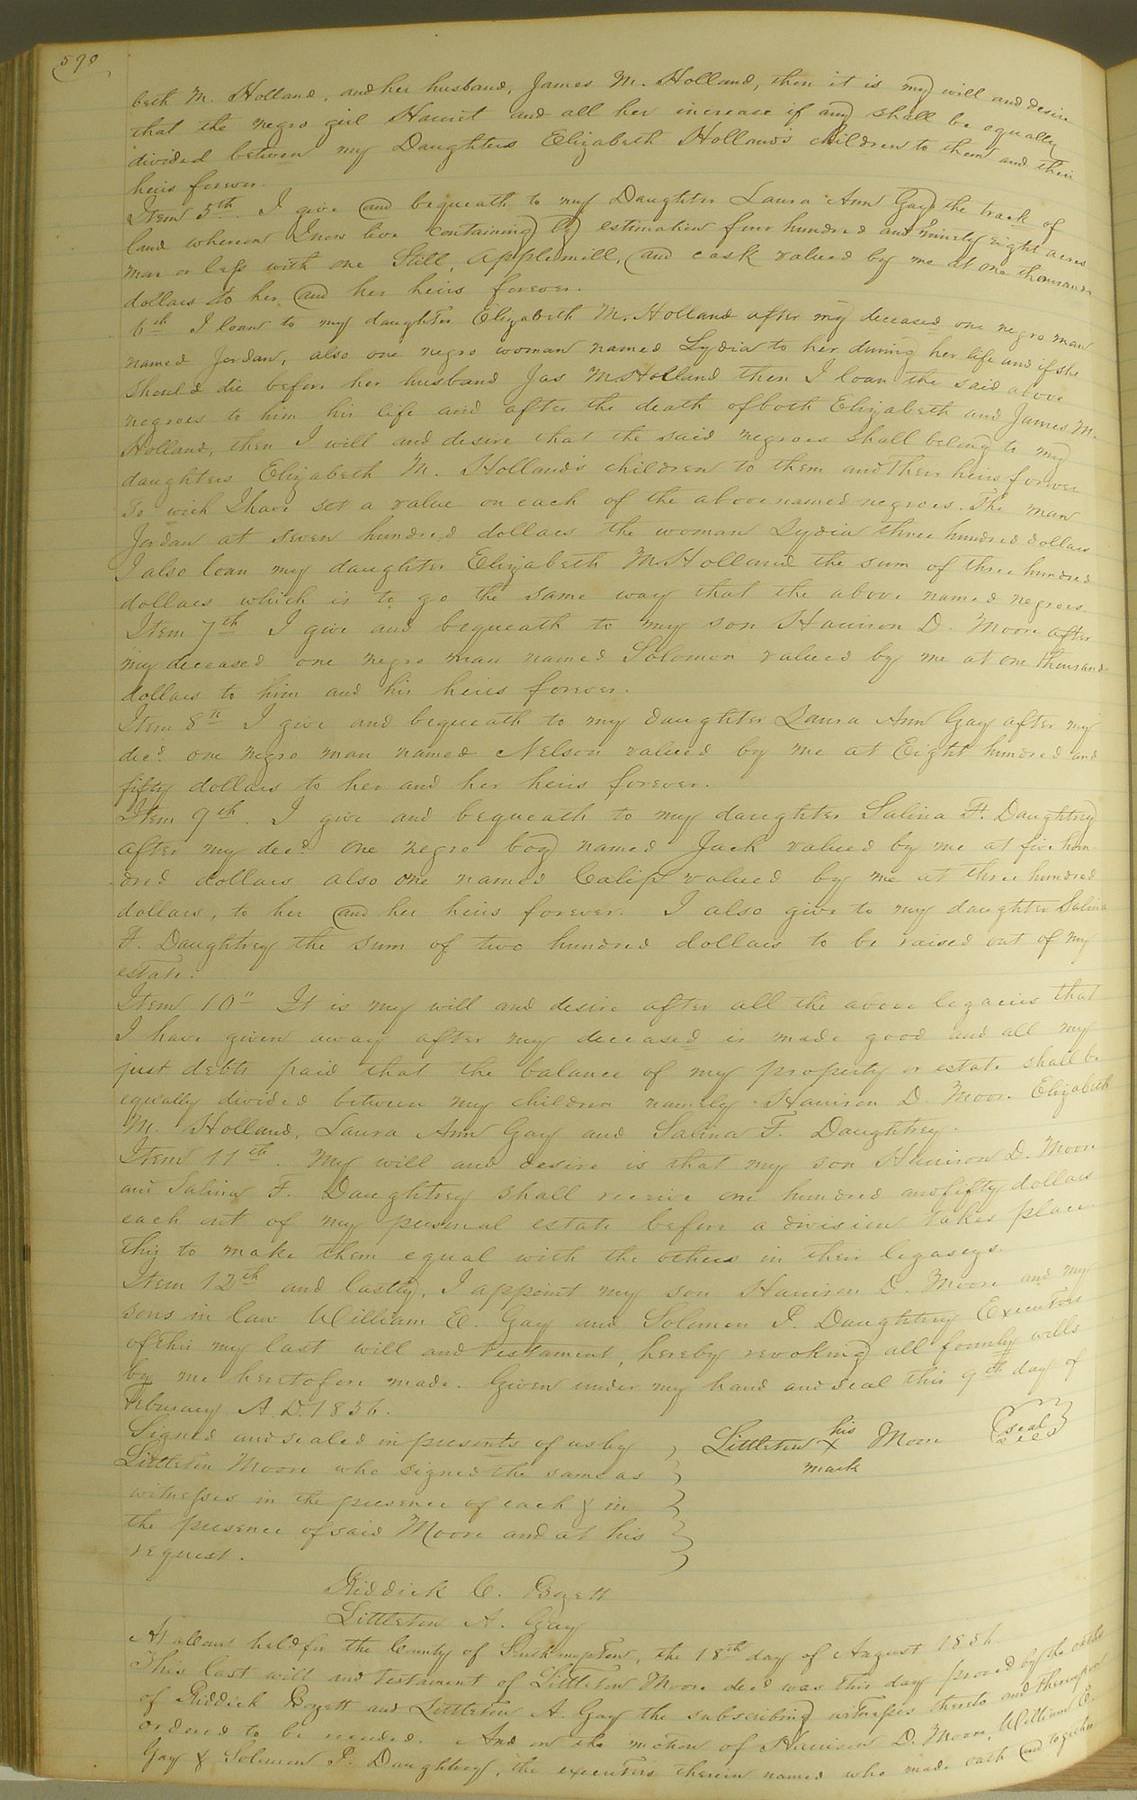 590
beth M. Holland, and her husband, James M. Holland, then it is my will and desire
that the negro girl Hariet and all her increase if any shall be equally
divided between my Daughters Elizabeth Holland's children to them and their
heirs forever.
Item 5th. I give and bequeath to my Daughter Laura Ann Gay the track of
land whereon I now live containing by estimation four hundred and ninety eight acres
more or less with one Still, applemill, and cask valued by me at one thousand
dollars to her and her heirs forever.
6th I loan to my daughter Elizabeth M. Holland after my deceased one negro man
named Jordan, also one negro woman named Lydia to her during her life and if she
should die before her husband Jas M Holland then I loan the said above
negroes to him his life and after the death of both Elizabeth and James M.
Holland, then I will and desire that the said negroes shall belong to my
daughters Elizabeth M. Holland's children to them and their heirs forever
To wich I have set a value on each of the above named negroes. The man
Jordan at seven hundred dollars the woman Lydia three hundred dollars
I also loan my daughter Elizabeth M. Holland the sum of three hundred
dollars which is to go the same way that the above named negroes.
Item 7th I give and bequeath to my son Harrison D. Moore after
my deceased one negro man named Solomon valued by me at one thousand
dollars to him and his heirs forever.
Item 8th I give and bequeath to my daughter Laura Ann Gay after my
decd. one negro man named Nelson valued by me at Eight hundred and
fifty dollars to her and her heirs forever.
Item 9th. I give and bequeath to my daughter Salina F. Daughtrey
after my decd. one negro boy named Jack valued by me at five hun-
dred dollars also one named Calip valued by me at three hundred
dollars, to her and her heirs forever. I also give to my daughter Salina
F. Daughtrey the sum of two hundred dollars to be raised out of my
estate.
Item 10" It is my will and desire after all the above legacies that
I have given away after my deceased is made good and all my
just debts paid that the balance of my property or estate shall be
equally divided between my children namely Harrison D. Moore Elizabeth
M. Holland, Laura Ann Gay and Salina F. Daughtrey.
Item 11th. My will and desire is that my son Harrison D. Moore
and Salina F. Daughtrey shall receive one hundred and fifty dollars
each out of my personal estate before a division takes place
this to make them equal with the others in their legaseys.
Item 12th and lastly, I appoint my son Harrison D. Moore and my
sons in law William E. Gay and Solomon P. Daughtrey Executors
of this my last will and testament, hereby revoking all formly wills
by me heretofore made. Given under my hand and seal this 9th day of
February A. D. 1856.
Signed and sealed in presents of us by
Littleton Moore who signed the same as
witnesses in the presence of each & in
the presence of said Moore and at his
request.
Littleton his X mark Moore (seal)
Riddick C. Bogett
Littleton A. Gay
At a Court held for the County of Southampton, the 18th day of August 1856.
This last will and testament of Littleton Moore decd was this day proved by the oaths
of Riddick Bogett and Littleton A. Gay the subscribing witnesses thereto and thereupon
ordered to be recorded. And on the motion of Harrison D. Moore, William E.
Gay & Solomon P. Daughtrey, the executors therein named who made oath and together